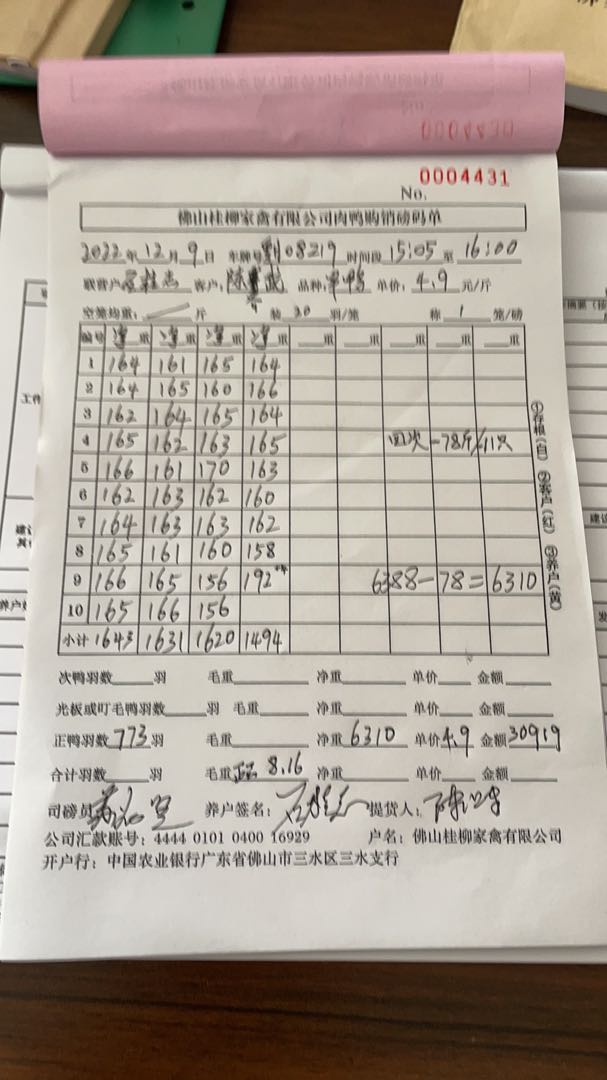 0004430
0004431
No.
佛山桂柳家禽有限公司肉鸭购销磅码单
2022年12月9日 车牌号 08219 时间段 15:05 至 16:00
联营户 客户：陈 品种： 单价：4.9 元/斤
空笼均重： 斤 装 20 羽/笼 称 1 笼/磅
编号 净重 净重 净重 净重 重 重 重 重
1 164 161 165 164
2 164 165 160 166
3 162 164 165 164
4 165 162 163 165 回次-78斤/11只
5 166 161 170 163
6 162 163 162 160
7 164 163 163 162
8 165 161 160 158
9 166 165 156 192 6388-78=6310
10 165 166 156
小计 1643 1631 1620 1494
①存根（白） ②客户（红） ③养户（黄）
次鸭羽数 羽 毛重 净重 单价 金额
光板或叮毛鸭羽数 羽 毛重 净重 单价 金额
正鸭羽数 773 羽 毛重 净重 6310 单价 4.9 金额 30919
合计羽数 羽 毛重 8.16 净重 单价 金额
司磅员 养户签名： 提货人：
公司汇款账号：4444 0101 0400 16929 户名：佛山桂柳家禽有限公司
开户行：中国农业银行广东省佛山市三水区三水支行